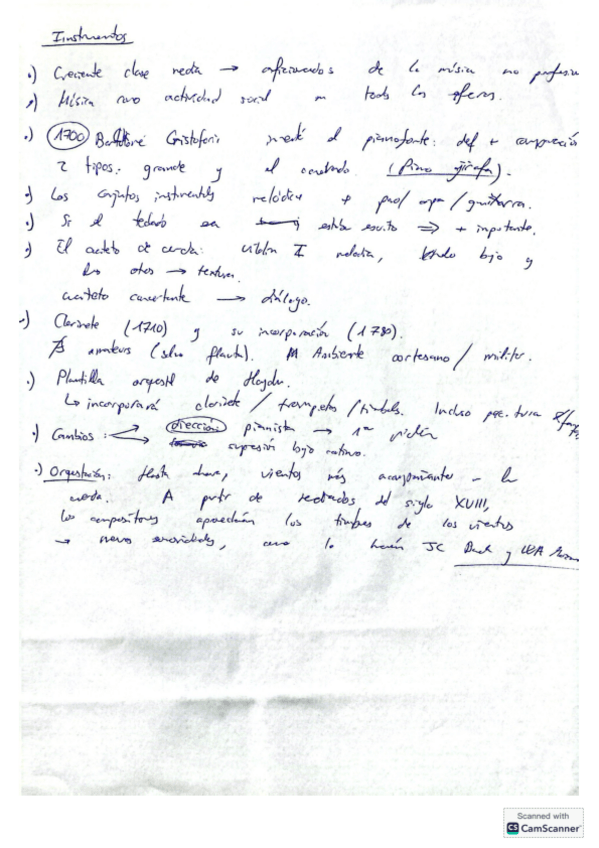 Instrumentos
·) Creciente clase media → aficionados de la música no profesion
·) Música como actividad social en todas las esferas.
·) 1700 Cristofori inventó el pianoforte: def + composición
2 tipos: grande y el cuadrado. (Piano jirafa).
·) Los conjuntos instrumentales melódica + piano/ arpa / guitarra.
·) Si el teclado estaba escrito ⇒ + importante.
·) El cuarteto de cuerda: violín I melodía, bajo y
los otros → textura.
cuarteto concertante → diálogo.
·) Clarinete (1710) y su incorporación (1780).
amateurs (salvo flauta). Ambiente cortesano / militar.
·) Plantilla orquestal de Haydn.
↳ incorporará clarinete / trompetas / timbales. Incluso
·) Cambios: dirección pianista → 1er violín
supresión bajo continuo.
·) Orquestación: Hasta ahora, vientos más acompañantes - la
cuerda. A partir de mediados del siglo XVIII,
los compositores aprovechan los timbres de los vientos
→ nuevas sonoridades, como lo harán JC Bach y WA Mozar
Scanned with
CS CamScanner